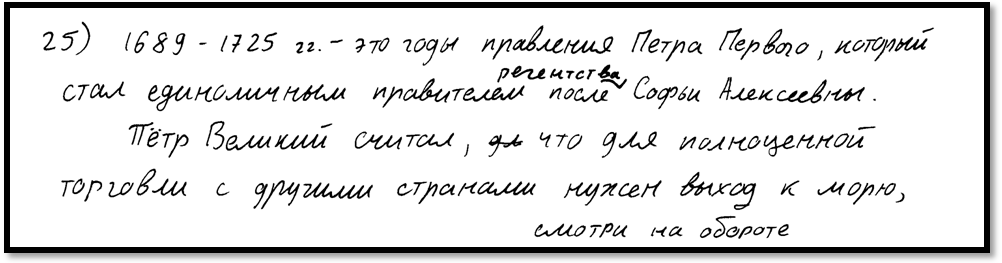 25) 1689 - 1725 гг. – это годы правления Петра Первого, который
стал единоличным правителем после регентства Софьи Алексеевны.
Пётр Великий считал, что для полноценной
торговли с другими странами нужен выход к морю,
смотри на обороте